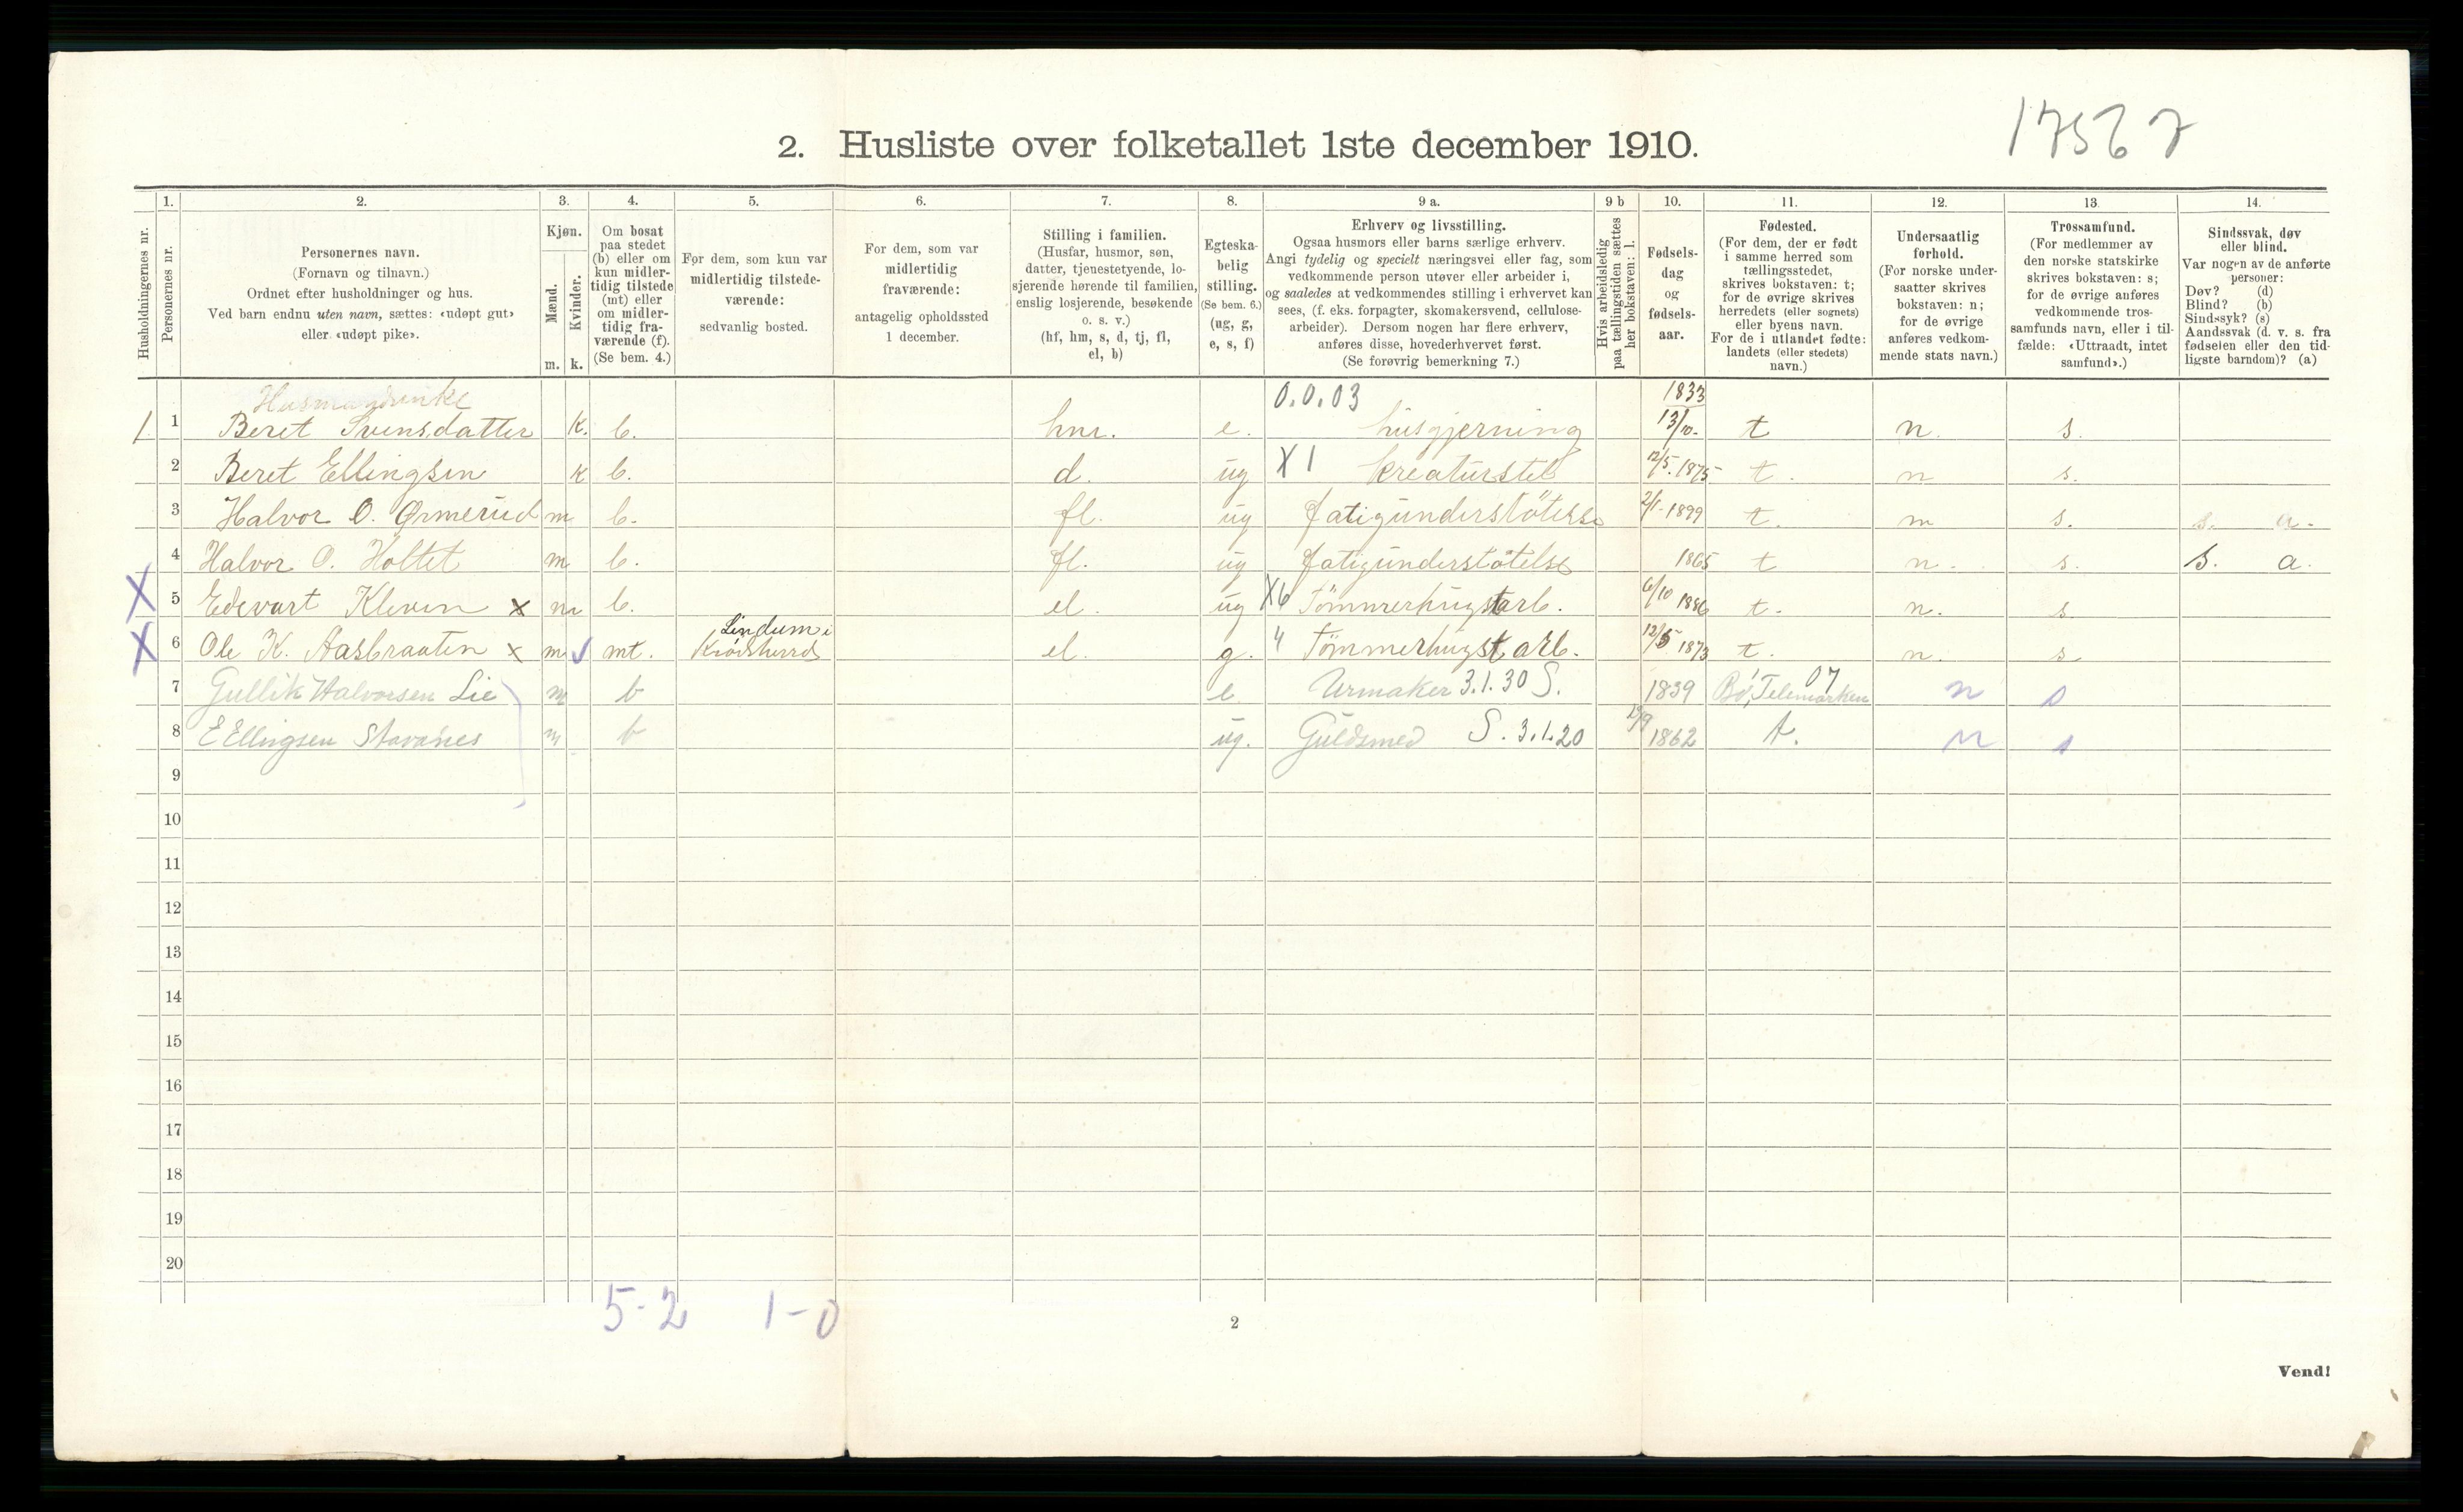 1756 7
2. Husliste over folketallet 1ste december 1910.
1. 2. 3. 4. 5. 6. 7. 8. 9 a. 9 b 10. 11. 12. 13. 14.
Husholdningernes nr.
Personernes nr.
Personernes navn.
(Fornavn og tilnavn.)
Ordnet efter husholdninger og hus.
Ved barn endnu uten navn, sættes: «udøpt gut»
eller «udøpt pike».
Kjøn.
Mænd.
Kvinder.
m. k.
Om bosat
paa stedet
(b) eller om
kun midler-
tidig tilstede
(mt) eller
om midler-
tidig fra-
værende (f).
(Se bem. 4.)
For dem, som kun var
midlertidig tilstede-
værende:
sedvanlig bosted.
For dem, som var
midlertidig
fraværende:
antagelig opholdssted
1 december.
Stilling i familien.
(Husfar, husmor, søn,
datter, tjenestetyende, lo-
sjerende hørende til familien,
enslig losjerende, besøkende
o. s. v.)
(hf, hm, s, d, tj, fl,
el, b)
Egteska-
belig
stilling.
(Se bem. 6.)
(ug, g,
e, s, f)
Erhverv og livsstilling.
Ogsaa husmors eller barns særlige erhverv.
Angi tydelig og specielt næringsvei eller fag, som
vedkommende person utøver eller arbeider i,
og saaledes at vedkommendes stilling i erhvervet kan
sees, (f. eks. forpagter, skomakersvend, cellulose-
arbeider). Dersom nogen har flere erhverv,
anføres disse, hovederhvervet først.
(Se forøvrig bemerkning 7.)
Hvis arbeidsledig
paa tællingstiden sættes
her bokstaven: l.
Fødsels-
dag
og
fødsels-
aar.
Fødested.
(For dem, der er født
i samme herred som
tællingsstedet,
skrives bokstaven: t;
for de øvrige skrives
herredets (eller sognets)
eller byens navn.
For de i utlandet fødte:
landets (eller stedets)
navn.)
Undersaatlig
forhold.
(For norske under-
saatter skrives
bokstaven: n;
for de øvrige
anføres vedkom-
mende stats navn.)
Trossamfund.
(For medlemmer av
den norske statskirke
skrives bokstaven: s;
for de øvrige anføres
vedkommende tros-
samfunds navn, eller i til-
fælde: «Uttraadt, intet
samfund».)
Sindssvak, døv
eller blind.
Var nogen av de anførte
personer:
Døv? (d)
Blind? (b)
Sindssyk? (s)
Aandssvak (d. v. s. fra
fødselen eller den tid-
ligste barndom)? (a)
Husmandsenke 0.0.03 1833
1 1 Beret Svensdatter k. b. hm. e. husgjerning 13/10. t n. s.
2 Beret Ellingsen k b. d. ug X 1 kreaturstel 12/5. 1875 t. n s.
3 Halvor O. Ørmerud m b. fl. ug fatigunderstötelse 2/1- 1899 t. n s. s. a.
4 Halvor O. Holtet m b. fl. ug fatigunderstötelse 1865 t n. s. s. a.
X 5 Edevart Kleven x m b. el. ug X6 Tömmerhugstarb. 6/10 1886 t. n. s
Lindum i
X 6 Ole K. Aasbraaten x m ✓ mt. Krödsherred el. g. " Tömmerhugstarb. 12/5 1873 t. n. s
7 Gullik Halvorsen Lie m b e Urmaker 3.1.30 S. 1839 Bö, Telemarken 07 n s
8 E Ellingsen Stavanes m b ug. Guldsmed S. 3.1.20 19/9 1862 t. n s
9
10
11
12
13
14
15
16
17
18
19
20
5-2 1-0
2
Vend!